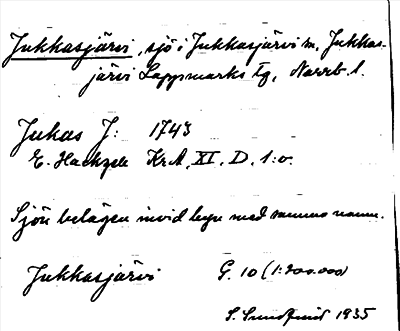 Jukkasjärvi, sjö i Jukkasjärvi sn, Jukkas-
järvi Lappmarks tg, Norrb. l.
Jukas J: 1743
E. Hackzell KrA, XI. D. 1:o.
Sjön belägen invid byn med samma namn.
Jukkasjärvi G. 10 (1:200.000)
S. 1935